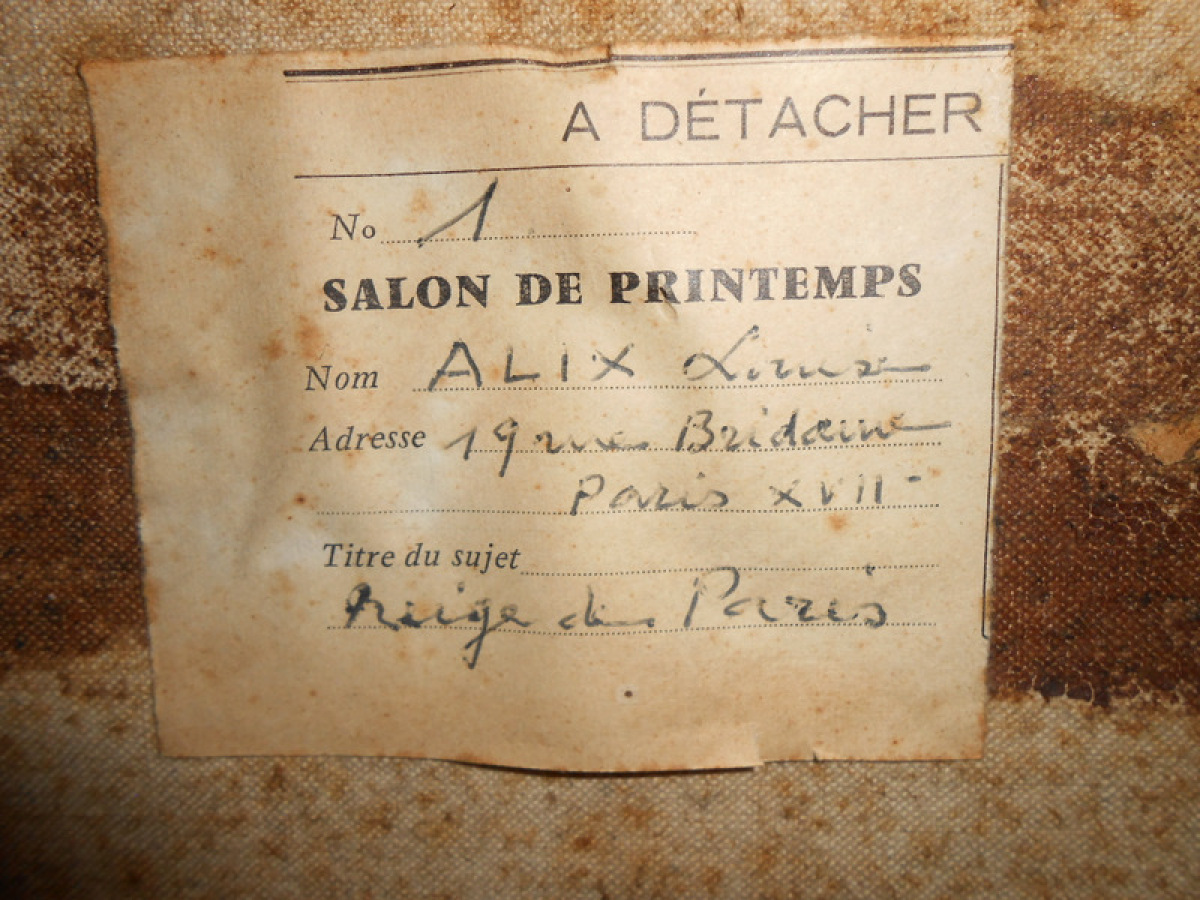 A DÉTACHER
No 1
SALON DE PRINTEMPS
Nom ALIX Louise
Adresse 19 rue Bridaine
Paris XVII
Titre du sujet
Neige de Paris